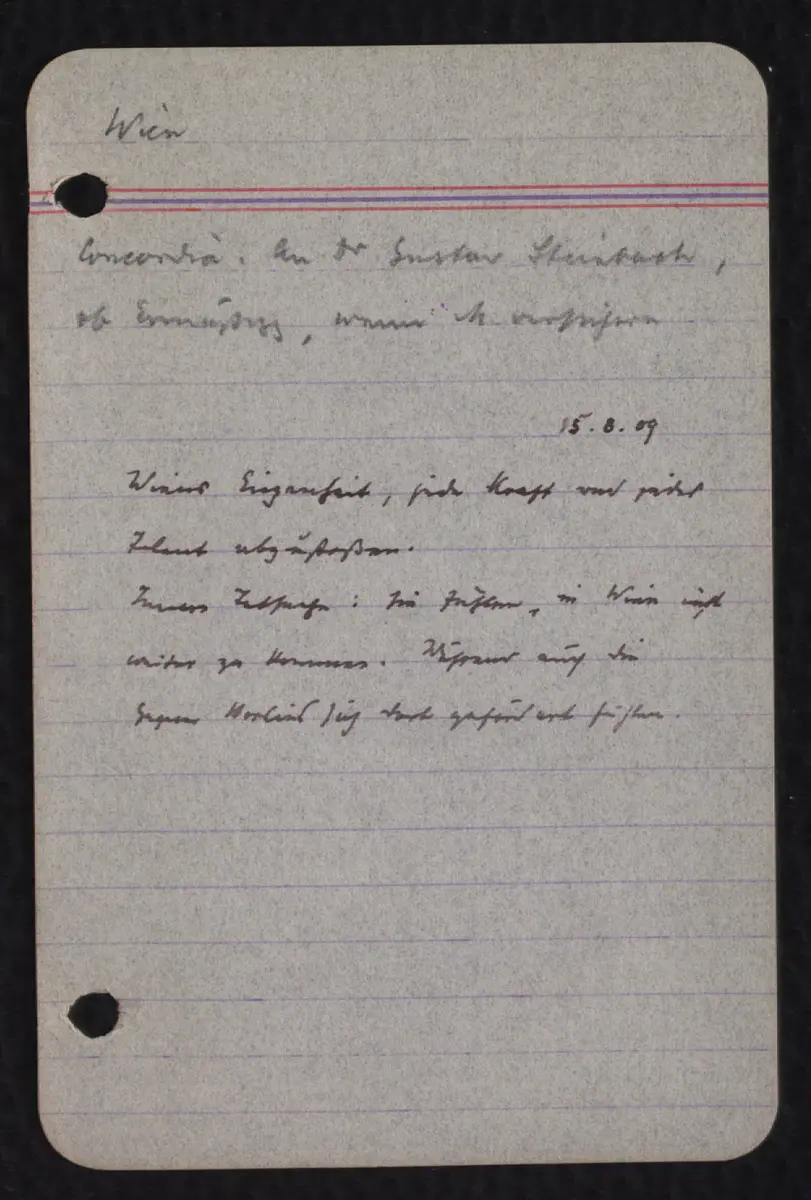 Wien
Concordia. An Dr Gustav Steinbach,
ob Ermäßigg, wenn M versichern
15.8.09
Wiens Eigenheit, jede Kraft und jedes
Talent abzustoßen.
Innere Tatsache: Sie fühlen, in Wien nicht
weiter zu kommen. Während auch die
Gegner Berlins sich dort gefördert fühlen.